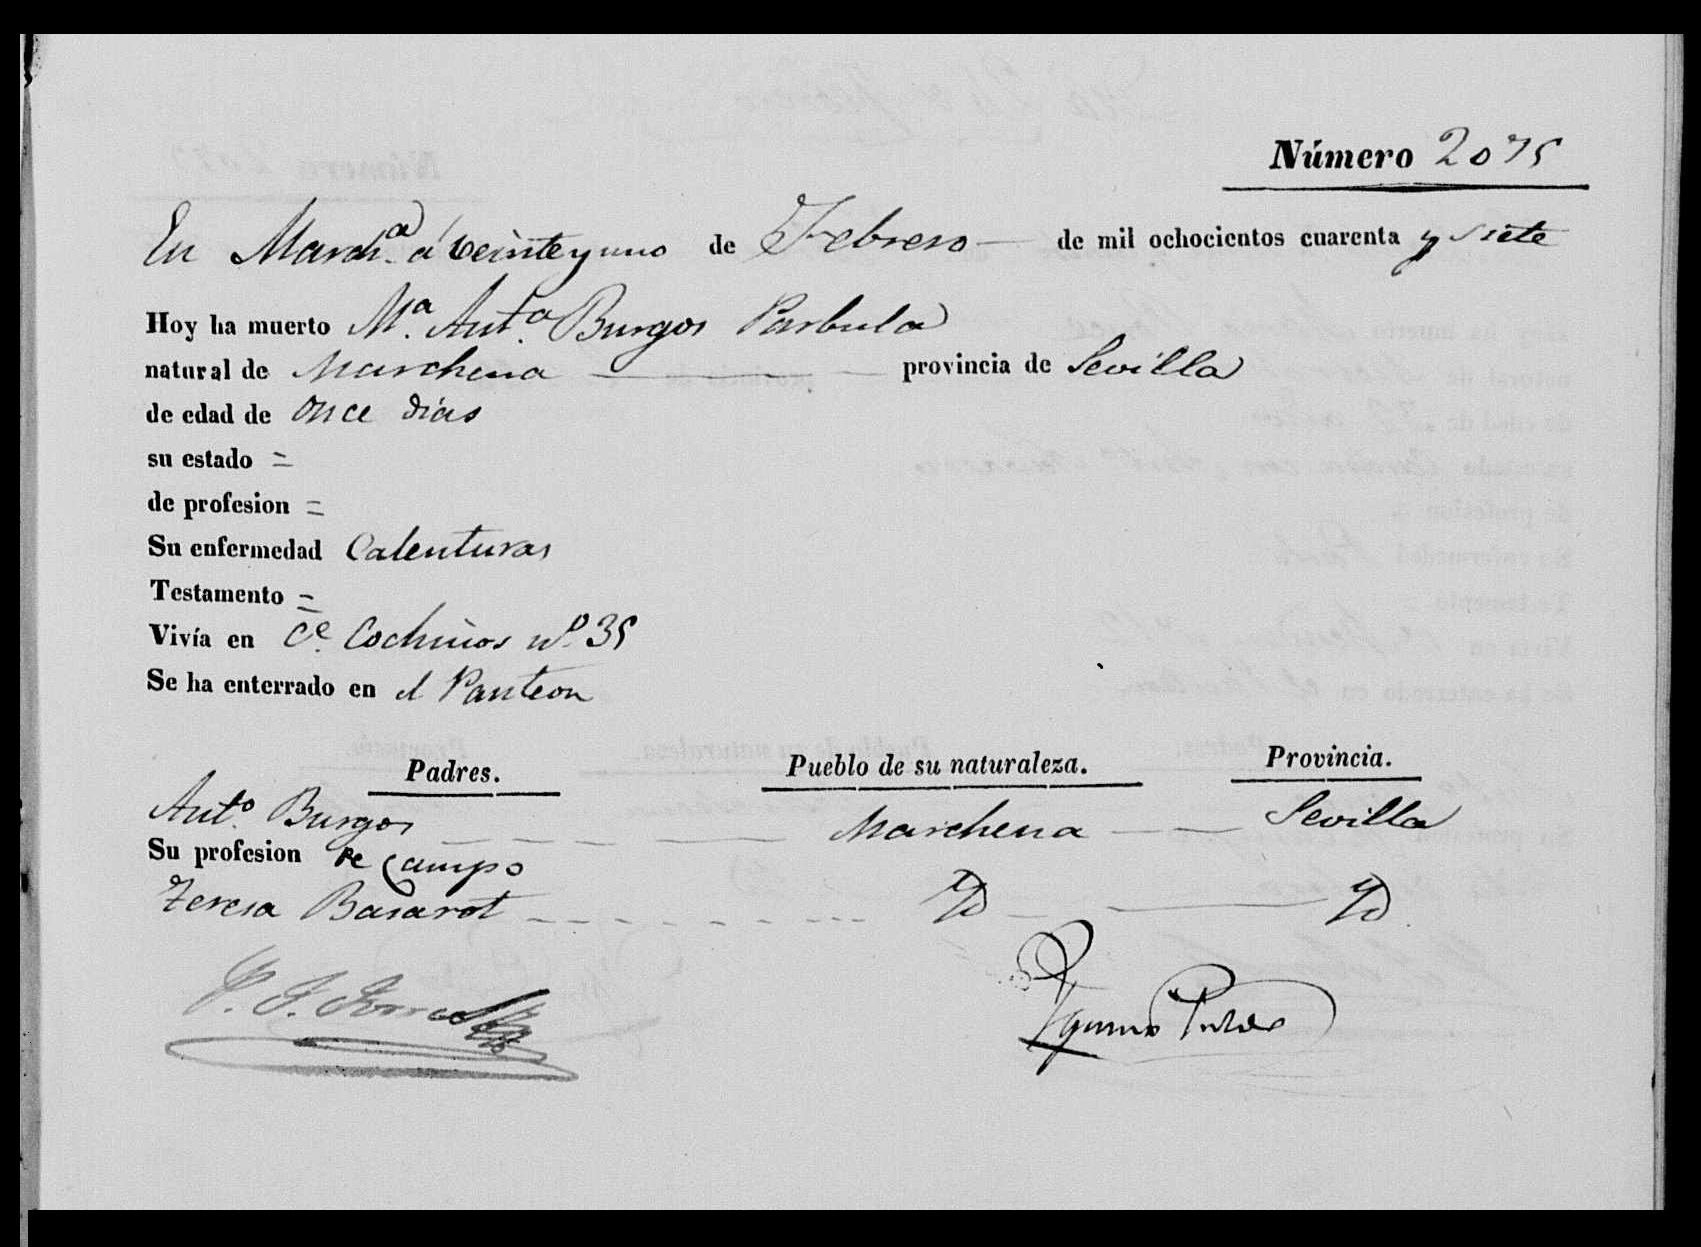 Número 2075
En March.ª á veinte y uno de Febrero de mil ochocientos cuarenta y siete
Hoy ha muerto Mª. Antª. Burgos Parbula
natural de Marchena provincia de Sevilla
de edad de once dias
su estado =
de profesion =
Su enfermedad Calenturas
Testamento =
Vivía en Cª. Cochinos nº. 35
Se ha enterrado en el Panteon
Padres. Pueblo de su naturaleza. Provincia.
Antº. Burgos Marchena Sevilla
Su profesion de Campo
Teresa Basarot Yd Yd